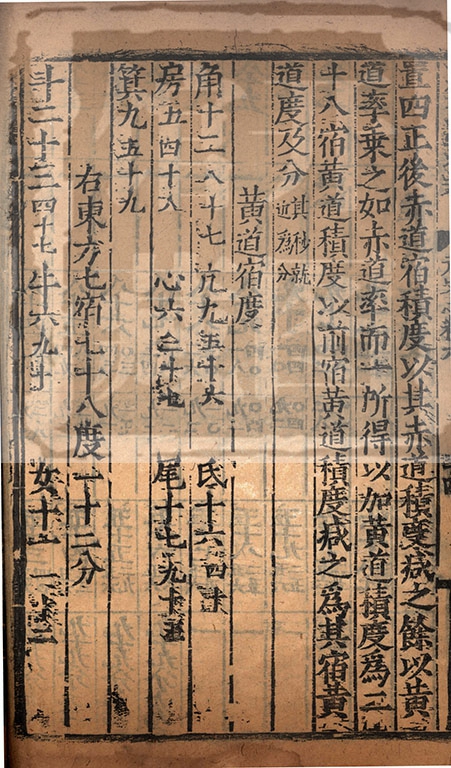 置四正後赤道宿積度以其赤道積度減之餘以黃
道率乗之如赤道率而一所得以加黃道積度為二
十八宿黃道積度以前宿黃道積度減之為其宿黃
道度及分其秒就近為分
黃道宿度
角十二八十七 亢九五十六 氐十六四十
房五四十八 心六二十七 尾十七九十五
箕九五十九
右東方七宿七十八度一十二分
斗二十三四十七 牛六九十 女十一一十二